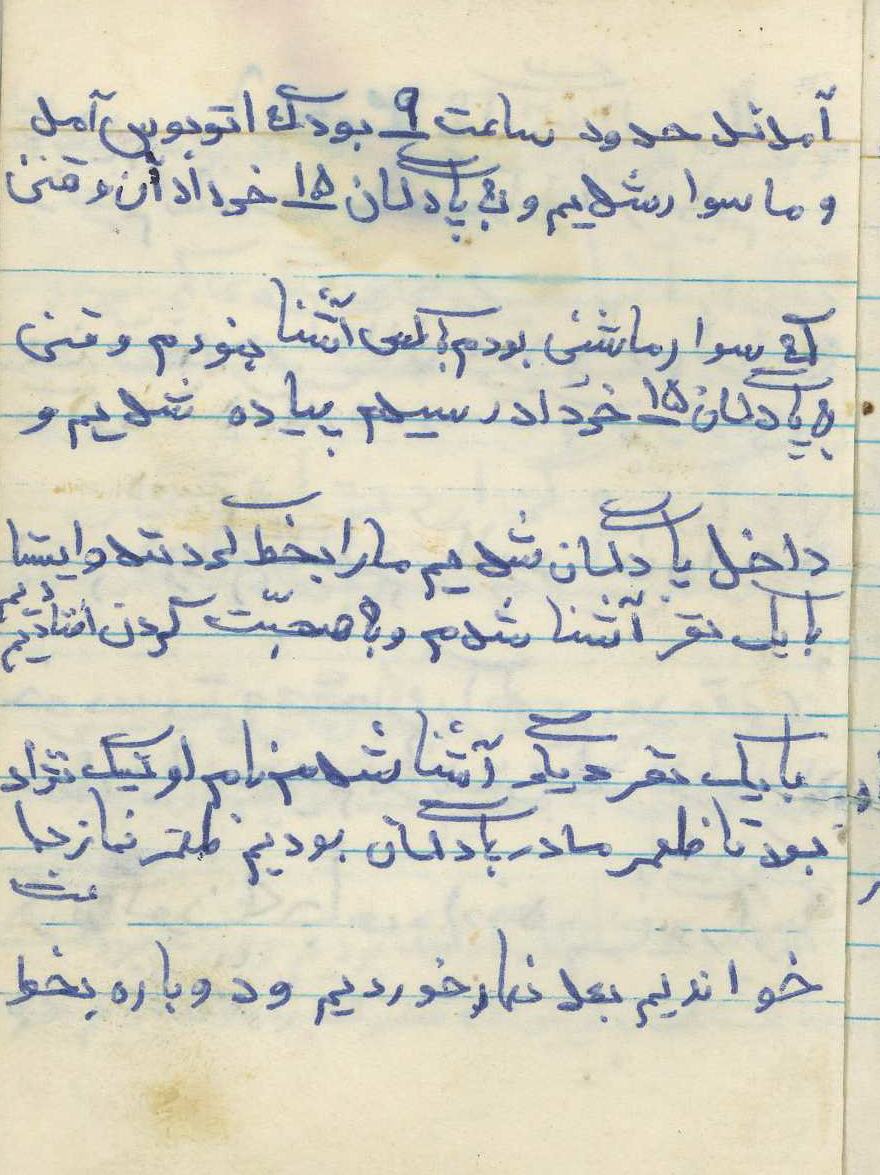 آمدند حدود ساعت ۹ بود که اتوبوس آمد
و ما سوار شدیم و به پادگان ۱۵ خرداد آن وقتی
که سوار ماشین بودم با کسی آشنا نبودم وقتی
به پادگان ۱۵ خرداد رسیدم پیاده شدیم و
داخل پادگان شدیم ما را بخط کردند و ایستادیم
با یک نفر آشنا شدم و با صحبّت کردن افتادیم
با یک نفر دیگر آشنا شدم نام او نیک نژاد
بود تا ظهر ما در پادگان بودیم ظهر نماز جماعت
خواندیم بعد نهار خوردیم و دوباره بخط